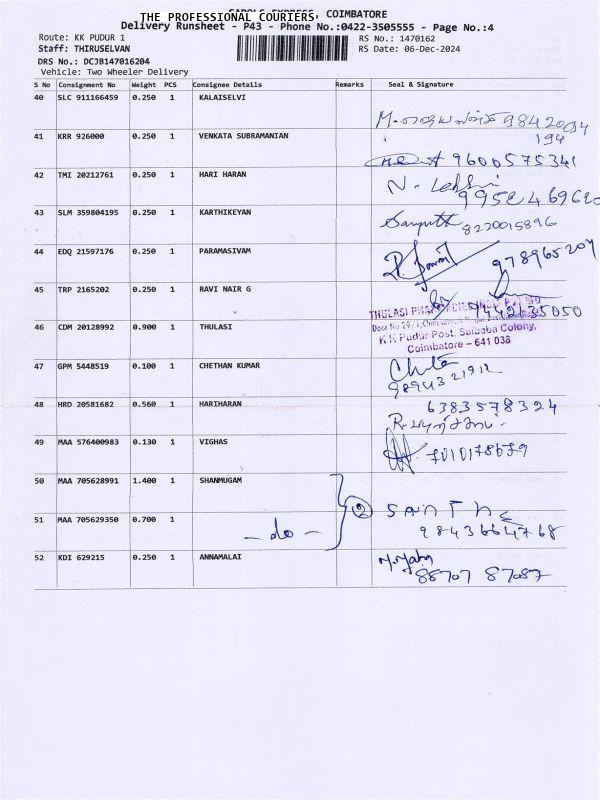 THE PROFESSIONAL COURIERS, COIMBATORE
Delivery Runsheet - P43 - Phone No.:0422-3505555 - Page No.:4
Route: KK PUDUR 1
RS No.: 1470162
Staff: THIRUSELVAN
RS Date: 06-Dec-2024
DRS No.: DCJB147016204
Vehicle: Two Wheeler Delivery
S No Consignment No Weight PCS Consignee Details Remarks Seal & Signature
40 SLC 911166459 0.250 1 KALAISELVI
194
41 KRR 926000 0.250 1 VENKATA SUBRAMANIAN
9600575341
42 TMI 20212761 0.250 1 HARI HARAN
N.
43 SLM 359804195 0.250 1 KARTHIKEYAN
8220015896
44 EDQ 21597176 0.250 1 PARAMASIVAM
45 TRP 2165202 0.250 1 RAVI NAIR G
46 CDM 20128992 0.900 1 THULASI
THULASI
K K Pudur Post, Saibaba Colony,
Coimbatore - 641 038
47 GPM 5448519 0.100 1 CHETHAN KUMAR
48 HRD 20581682 0.560 1 HARIHARAN
6383578324
49 MAA 576400983 0.130 1 VIGHAS
50 MAA 705628991 1.400 1 SHANMUGAM
2
51 MAA 705629350 0.700 1
- do -
9843664768
52 KDI 629215 0.250 1 ANNAMALAI
88707 87087